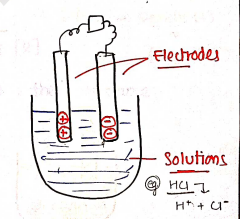 Electrodes
+ -
+ -
Solutions
eg HCl
H⁺ + Cl⁻